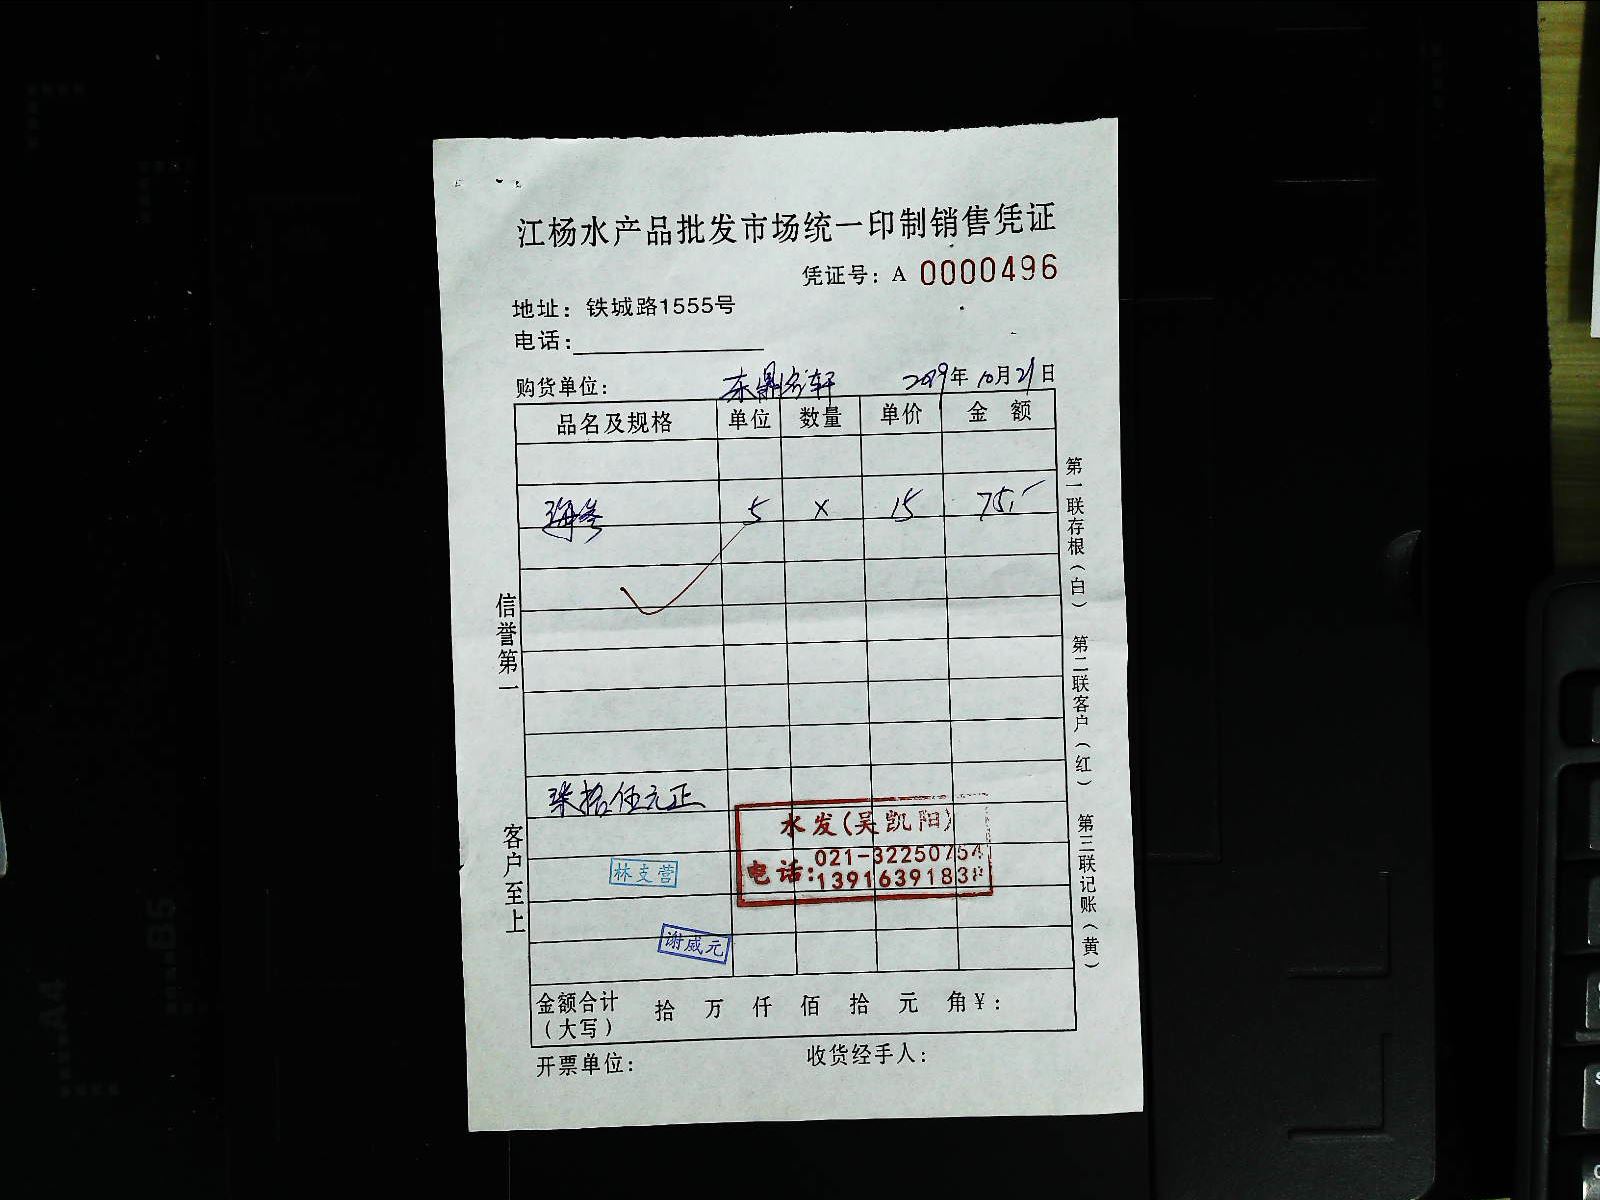 江杨水产品批发市场统一印制销售凭证
凭证号：A 0000496
地址：铁城路1555号
电话：
购货单位： 东鼎 轩 2019年10月21日
品名及规格 单位 数量 单价 金 额
海参 5 × 15 75.-
柒拾伍元正
水发(吴凯阳)
电话:021-32250754
13916391838
林支营
谢威元
金额合计（大写） 拾 万 仟 佰 拾 元 角￥：
开票单位： 收货经手人：
信誉第一 客户至上
第一联存根（白） 第二联客户（红） 第三联记账（黄）
A4
B5